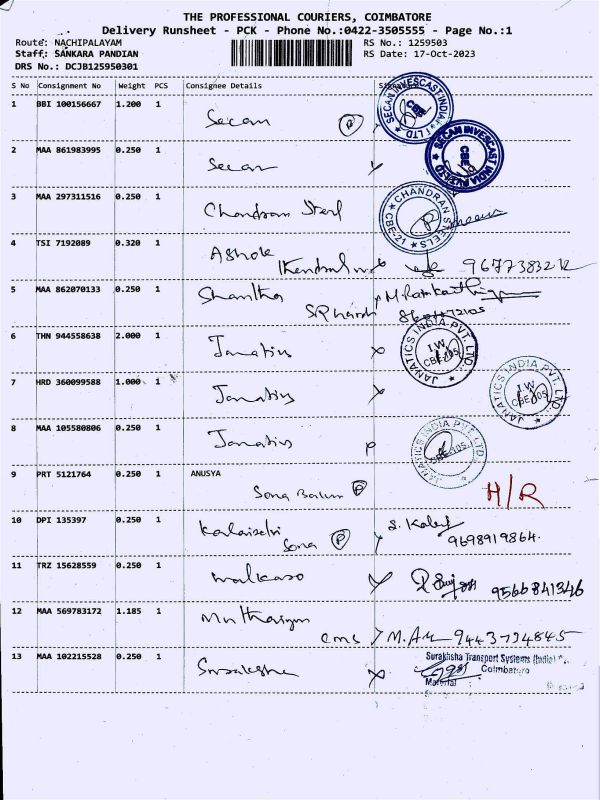 THE PROFESSIONAL COURIERS, COIMBATORE
Delivery Runsheet - PCK - Phone No.:0422-3505555 - Page No.:1
Route: NACHIPALAYAM RS No.: 1259503
Staff: SANKARA PANDIAN RS Date: 17-Oct-2023
DRS No.: DCJB125950301
S No Consignment No Weight PCS Consignee Details
1 BBI 100156667 1.200 1 Secan P
SECAN INVESCAST INDIA P LTD CBE
2 MAA 861983995 0.250 1 Secan
SECAN INVESCAST INDIA CBE
3 MAA 297311516 0.250 1 Chandran Steel
CHANDRAN STEELS CBE-21
4 TSI 7192089 0.320 1 Ashok
5 MAA 862070133 0.250 1 Shantha
6 THN 944558638 2.000 1 Janatics
JANATICS INDIA PVT. LTD. I W CBE-105
7 HRD 360099588 1.000 1 Janatics
JANATICS INDIA PVT. LTD. I W CBE-105
8 MAA 105580806 0.250 1 Janatics
JANATICS INDIA PVT. LTD CBE-105
9 PRT 5121764 0.250 1 ANUSYA
Sona P H/R
10 DPI 135397 0.250 1 Kalaiselvi S.
Sona P 9698919864
11 TRZ 15628559 0.250 1 9566841346
12 MAA 569783172 1.185 1
cms M. 9443734845
13 MAA 102215528 0.250 1
Surakhsha Transport Systems (India)
Coimbatore
Material